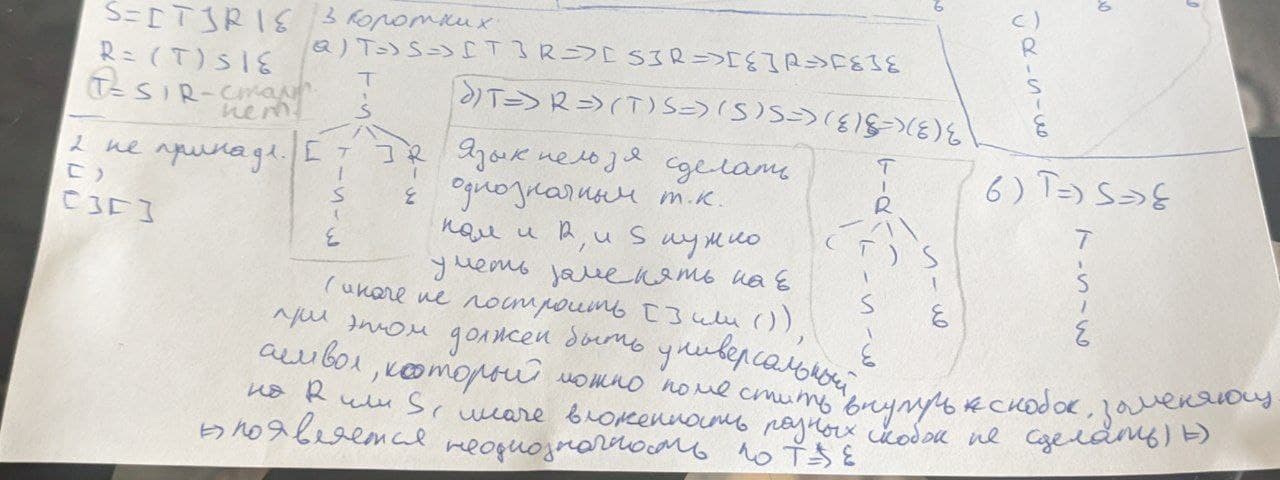 S=[T]R|ε
R=(T)S|ε
T=S|R-старт.
нет.
2 не принадл.
[)
[][]
3 коротких
а) T=>S=>[T]R=>[S]R=>[ε]R=>[ε]ε
T
S
[ T ] R
S ε
ε
б) T=>R=>(T)S=>(S)S=>(ε)S=>(ε)ε
Язык нельзя сделать
однозначным т.к.
нам и R, и S нужно
уметь заменять на ε
(иначе не построить [] или ()),
при этом должен быть универсальный
символ, который можно поместить внутрь скобок, заменяющ
на R или S, иначе вложенность разных скобок не сделать) =>
=> появляется неоднозначность по T=>ε
T
R
( T ) S
S ε
ε
ε ε ε
с)
R
S
ε
в) T=>S=>ε
T
S
ε